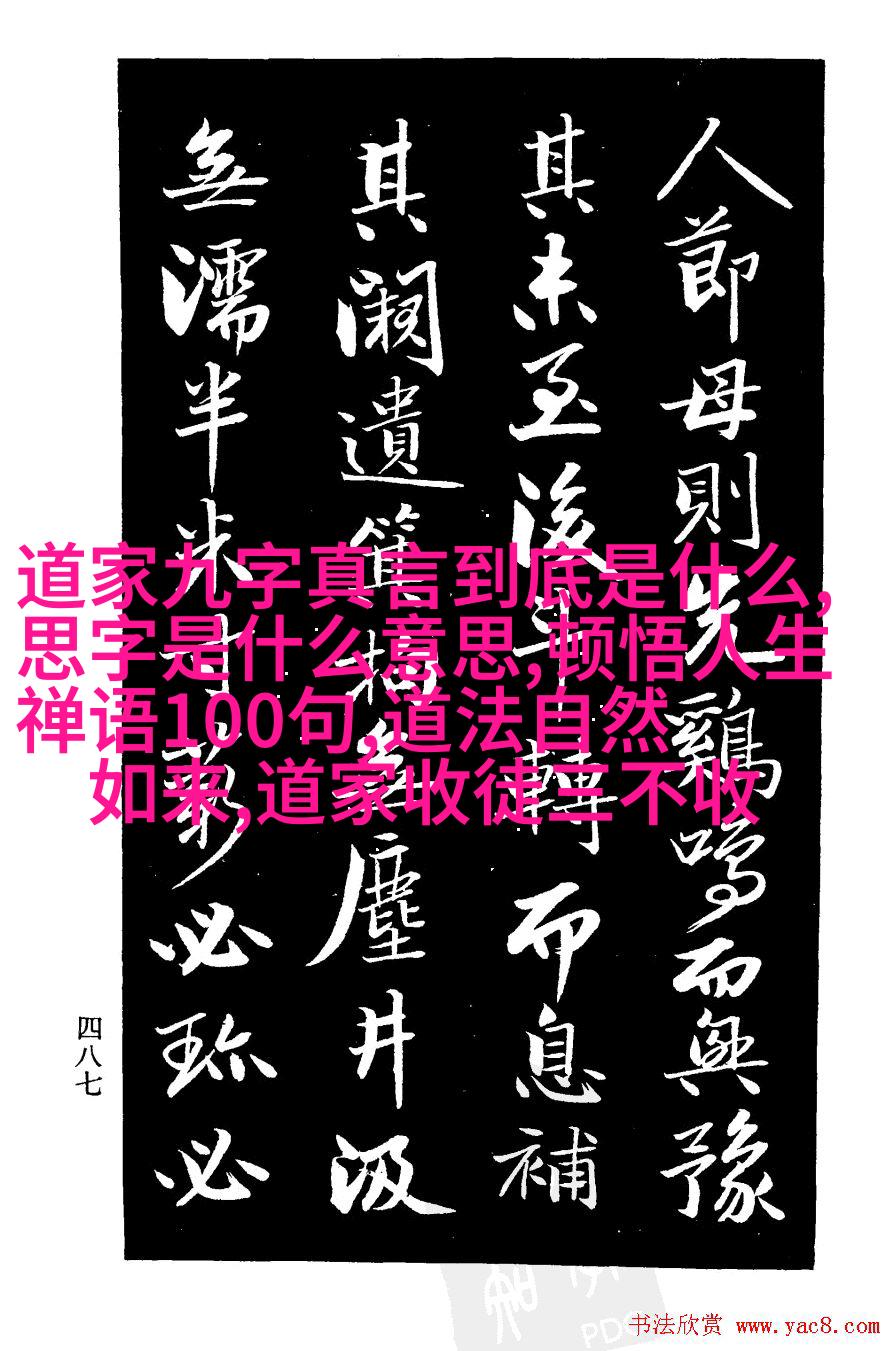 人節母則先鷄鳴而興豫
其未至後斗轉而息補
其闕遺無塵井汲
無濡半米寸薪必珎必
道家九字真言到底是什么,
思字是什么意思,顿悟人生
禅语100句,道法自然
如来,道家收徒三不收
四八七
PDG
书法欣赏 www.yac8.com